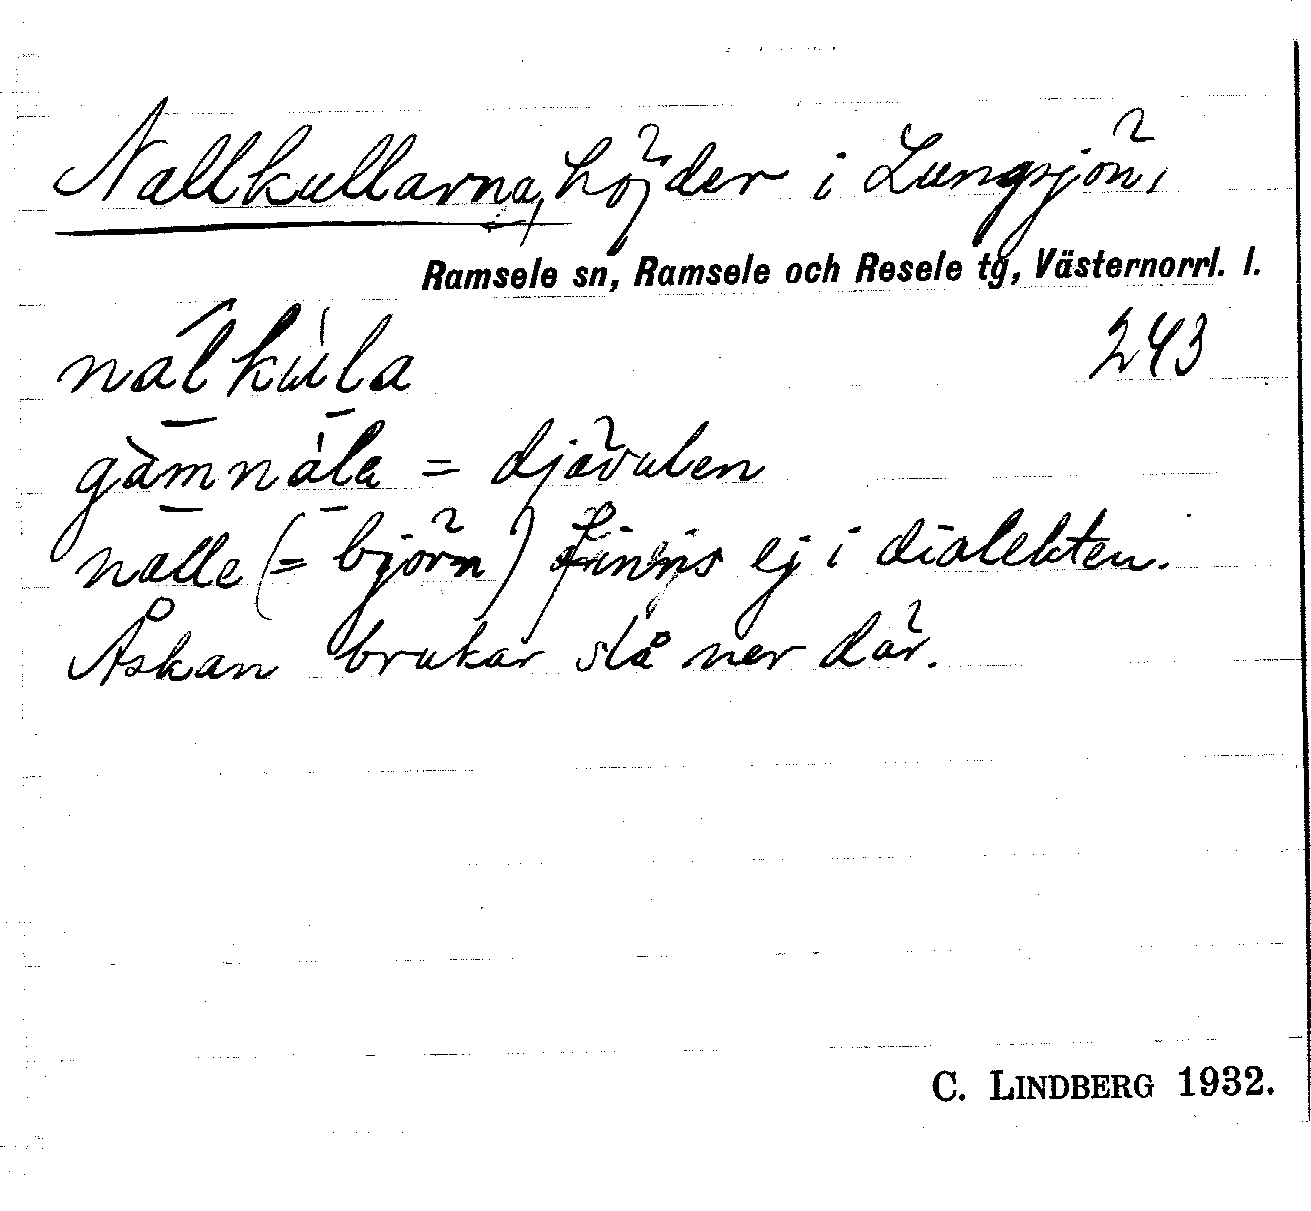 Nallkullarna, höjder i Lungsjön,
Ramsele sn, Ramsele och Resele tg, Västernorrl. l.
nálkùla
243
gàmnàla = djävulen
nalle (= björn) finns ej i dialekten.
Åskan brukar slå ner där.
C. LINDBERG 1932.